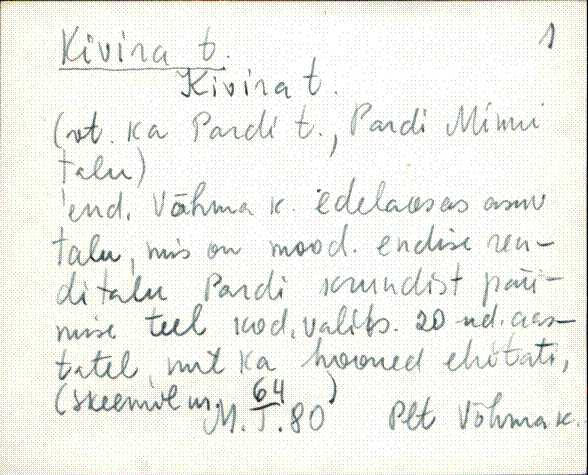 Kivira t. 1
Kivira t.
(vt. ka Pardi t., Pardi Minni
talu)
end. Võhma k. edelaosas asuv
talu, mis on mood. endise ren-
ditalu Pardi krundist päri-
mise teel kod. valits. 20-nd. aas-
tatel, mil ka hooned ehitati,
(skeemil nr. 64)
M. T. 80 Plt Võhma k.